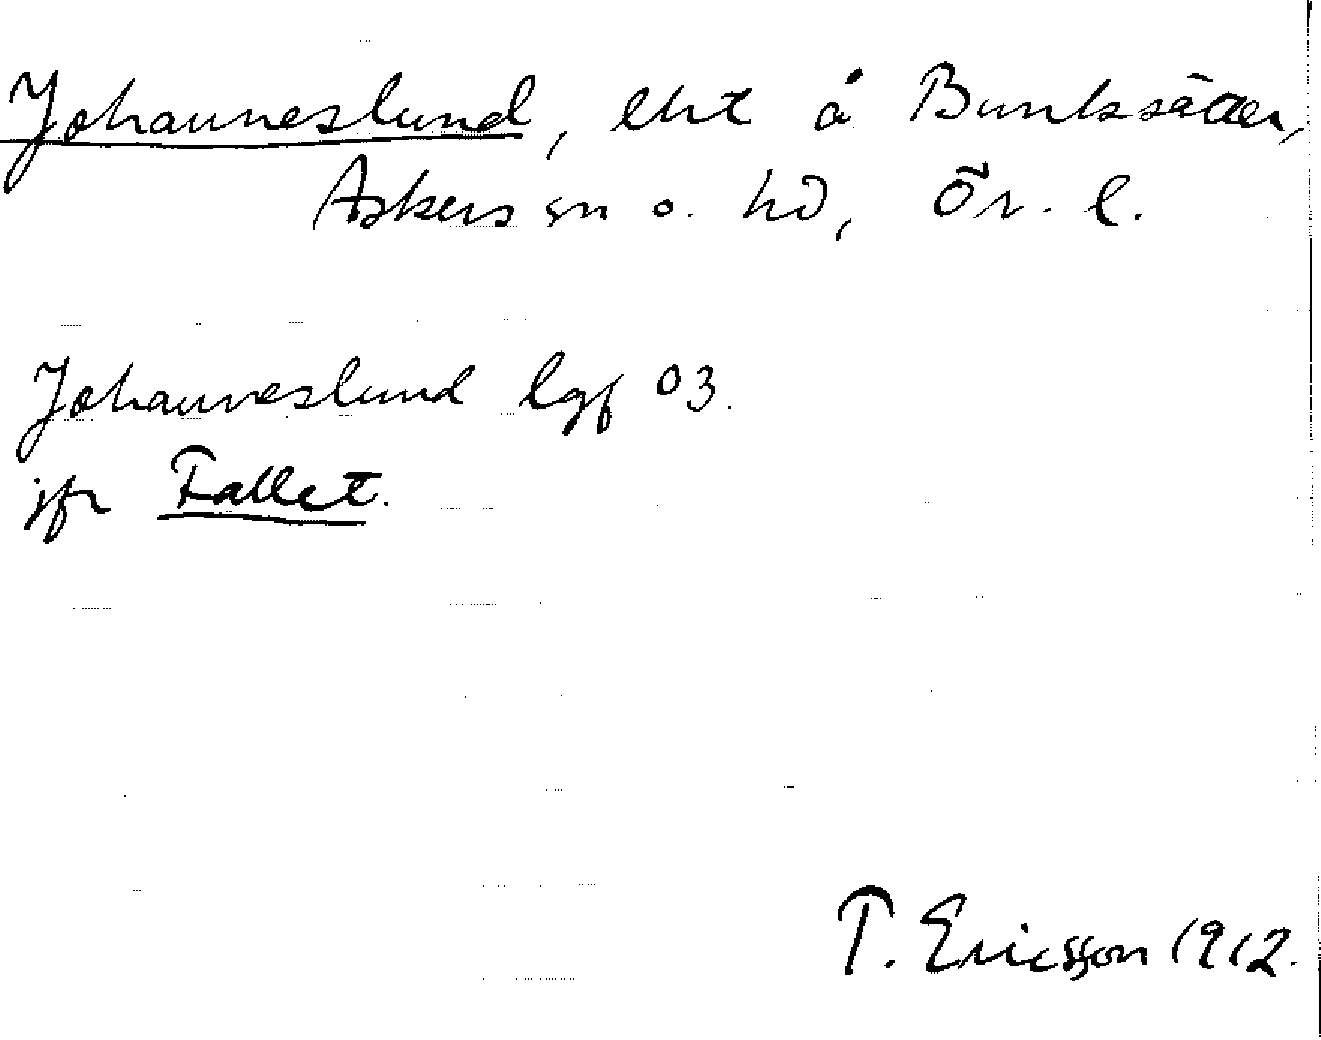 Johanneslund, lht å Bunksäter,
Askers sn o. hd, Ör. l.
Johanneslund lgf 03.
jfr Fallet.
T. Ericsson 1912.